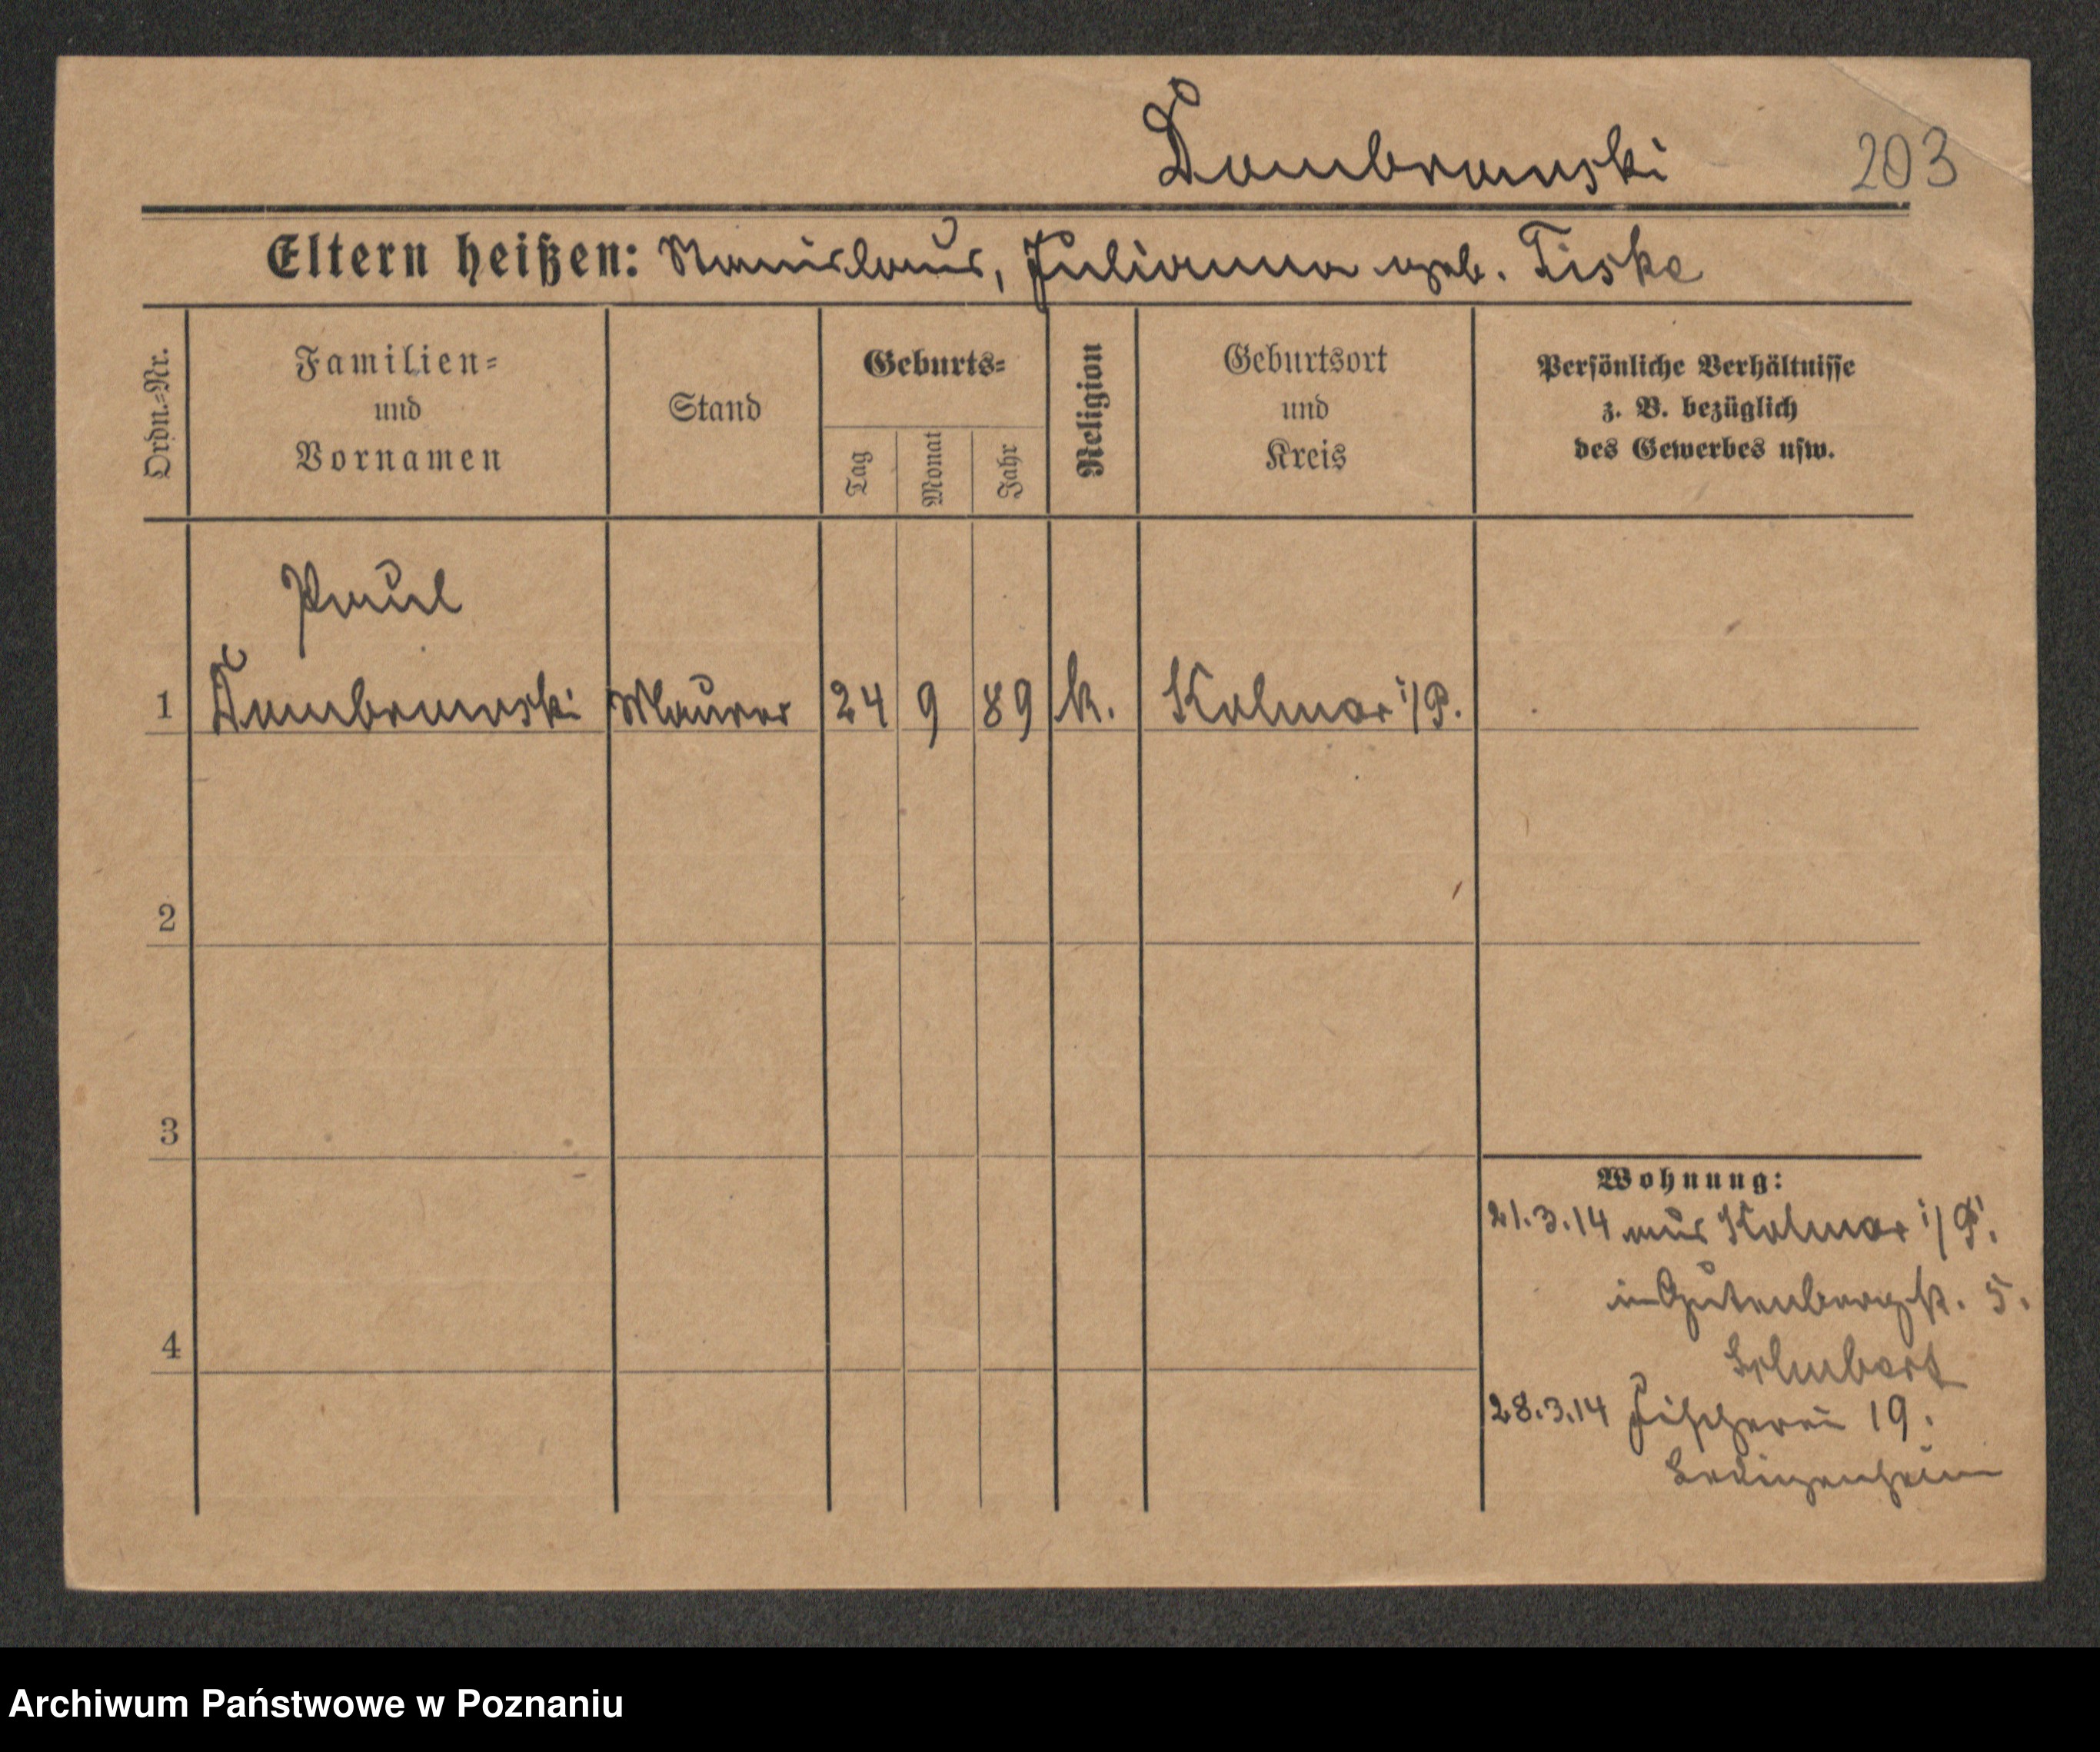 Dombrowski 203
Eltern heißen: Stanislaus, Julianna geb. Tiske
Ordn.-Nr.
Familien-
und
Vornamen
Stand
Geburts-
Tag
Monat
Jahr
Religion
Geburtsort
und
Kreis
Persönliche Verhältnisse
z. B. bezüglich
des Gewerbes usw.
Paul
1 Dombrowski Maurer 24 9 89 k. Kolmar i/P.
2
3
4
Wohnung:
21.3.14 aus Kolmar i/P.
in Gutenbergstr. 5.
Schubert
28.3.14 Fischerei 19.
Archiwum Państwowe w Poznaniu